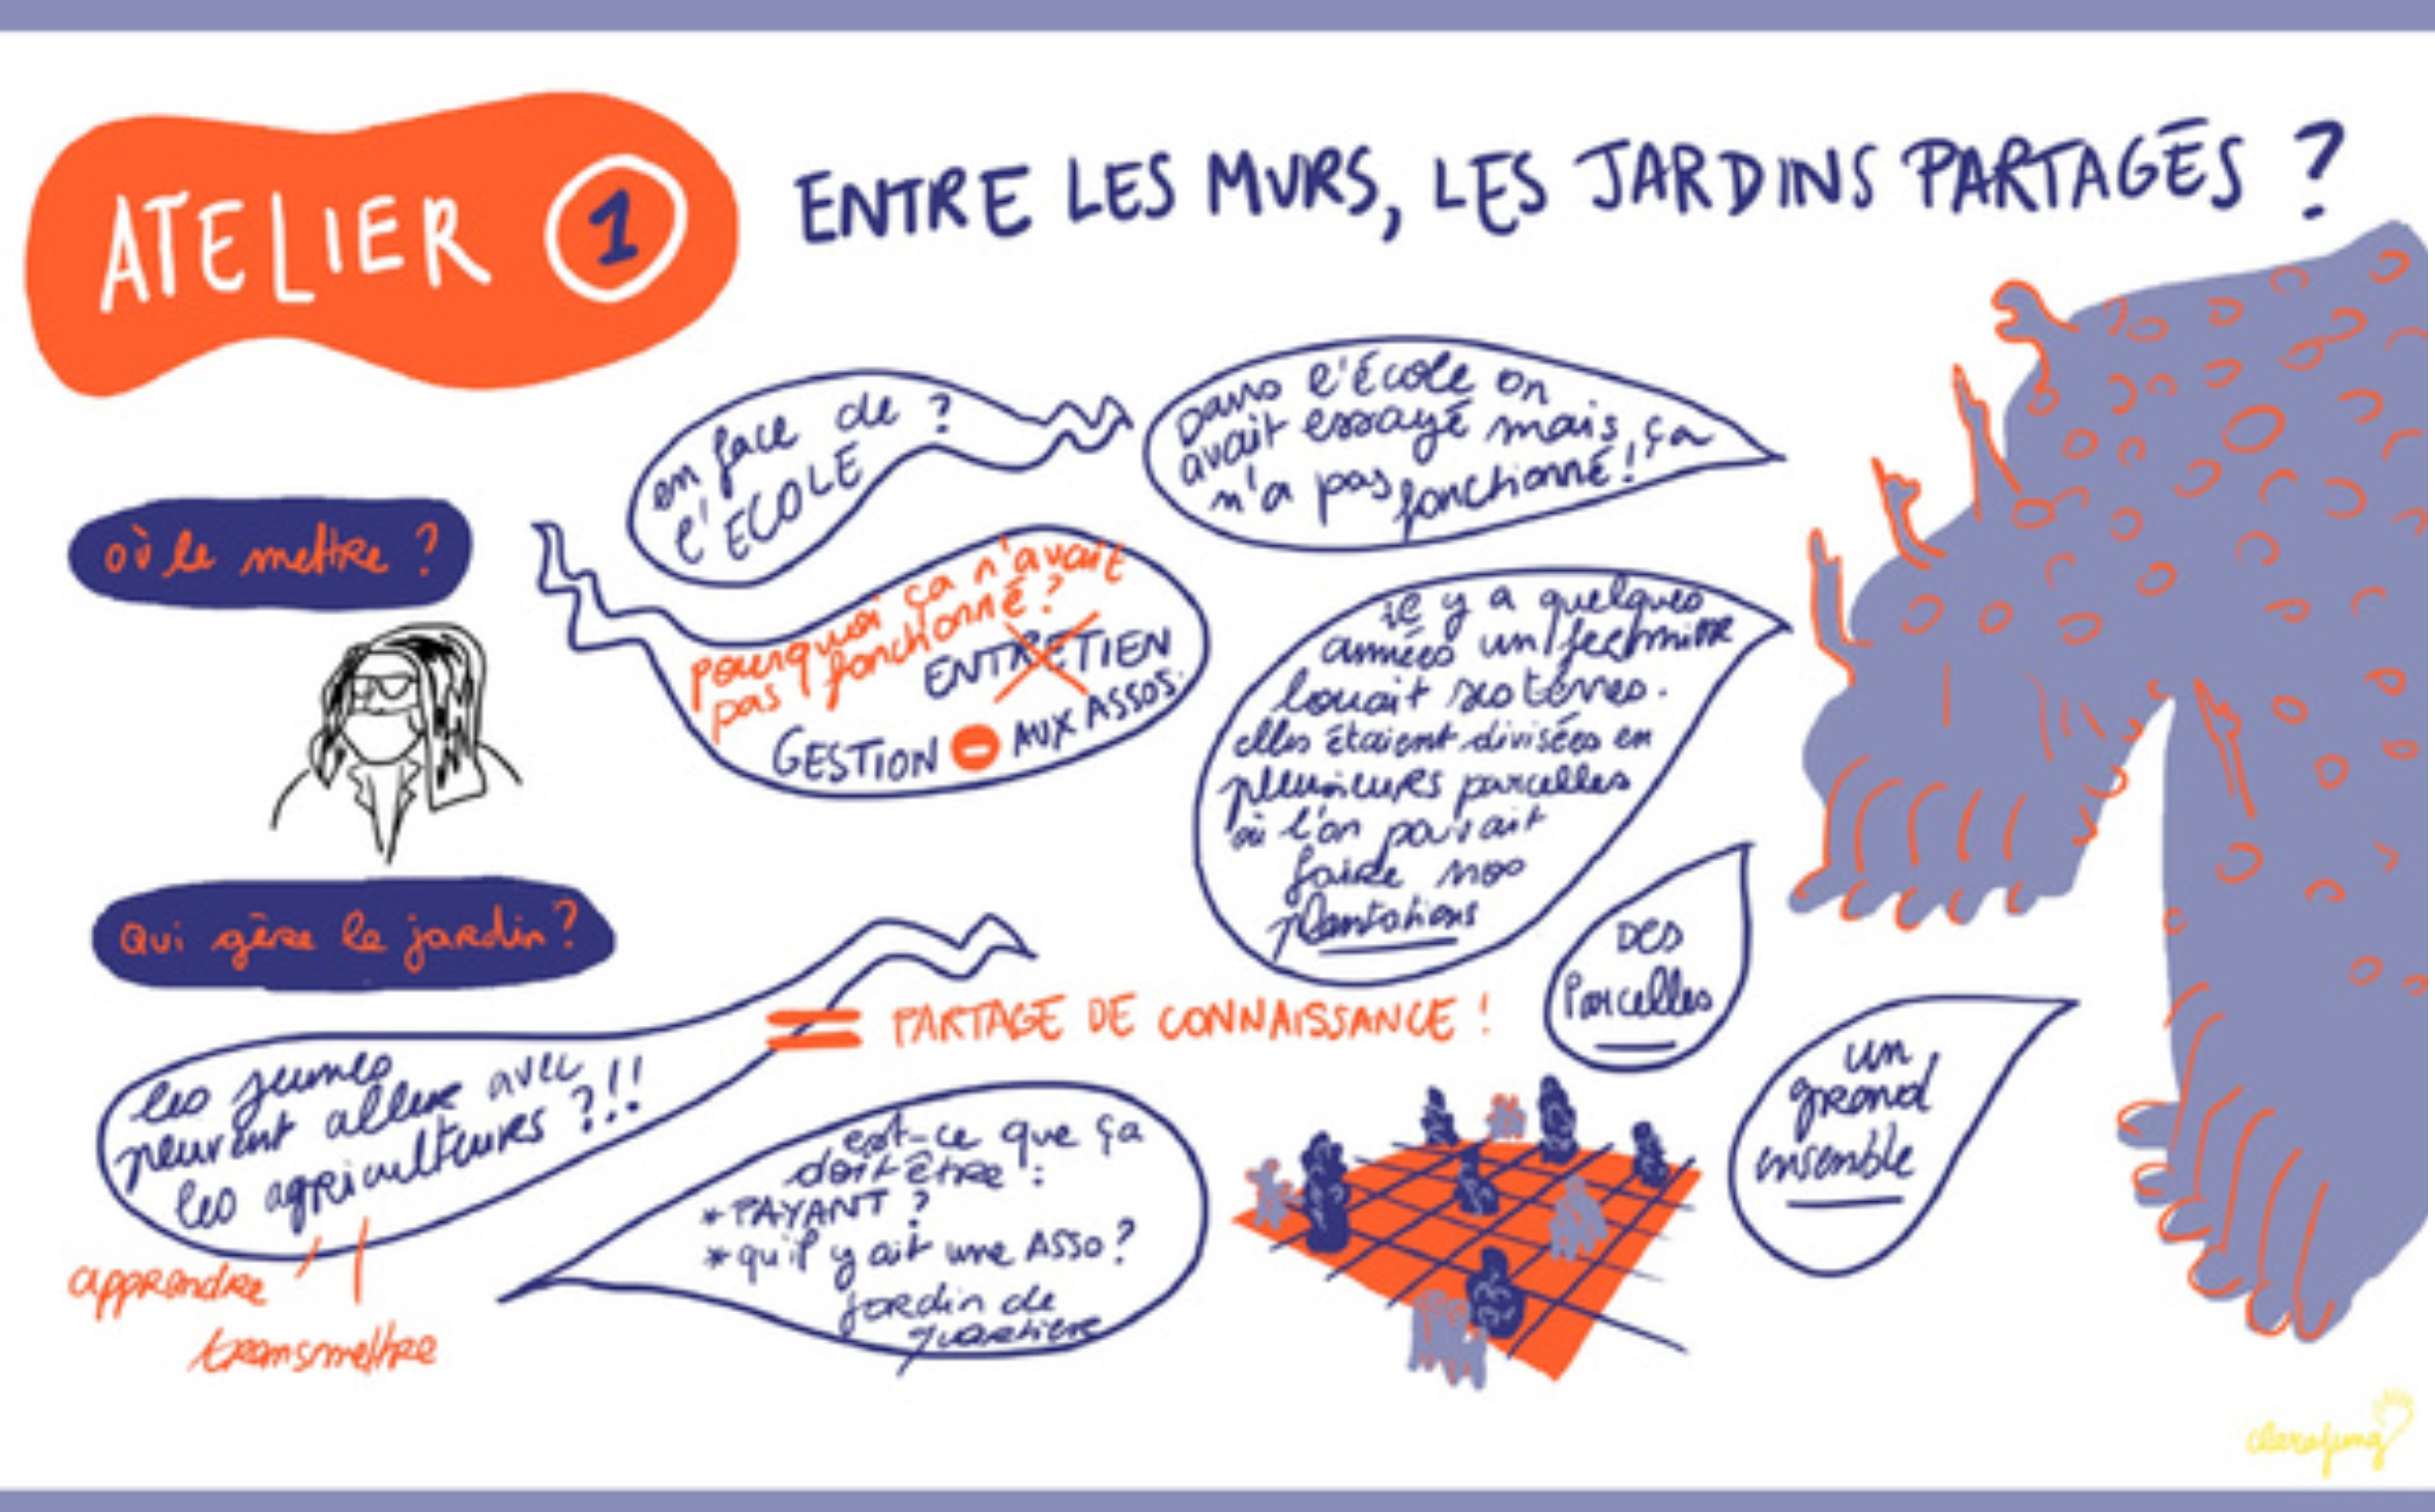 ATELIER 1
ENTRE LES MURS, LES JARDINS PARTAGÉS ?
où le mettre ?
en face de ?
l'ECOLE
Dans l'École on
avait essayé mais ça
n'a pas fonctionné !
pourquoi ça n'avait
pas fonctionné ?
ENTRETIEN
GESTION - AUX ASSOS.
il y a quelques
années un
louait ses terres.
elles étaient divisées en
plusieurs parcelles
où l'on pouvait
faire nos
plantations
Qui gère le jardin ?
DES
Parcelles
un
grand
ensemble
= PARTAGE DE CONNAISSANCE !
les jeunes
peuvent aller avec
les agriculteurs ?!!
apprendre
transmettre
est-ce que ça
doit être :
* PAYANT ?
* qu'il y ait une ASSO ?
jardin de
quartier